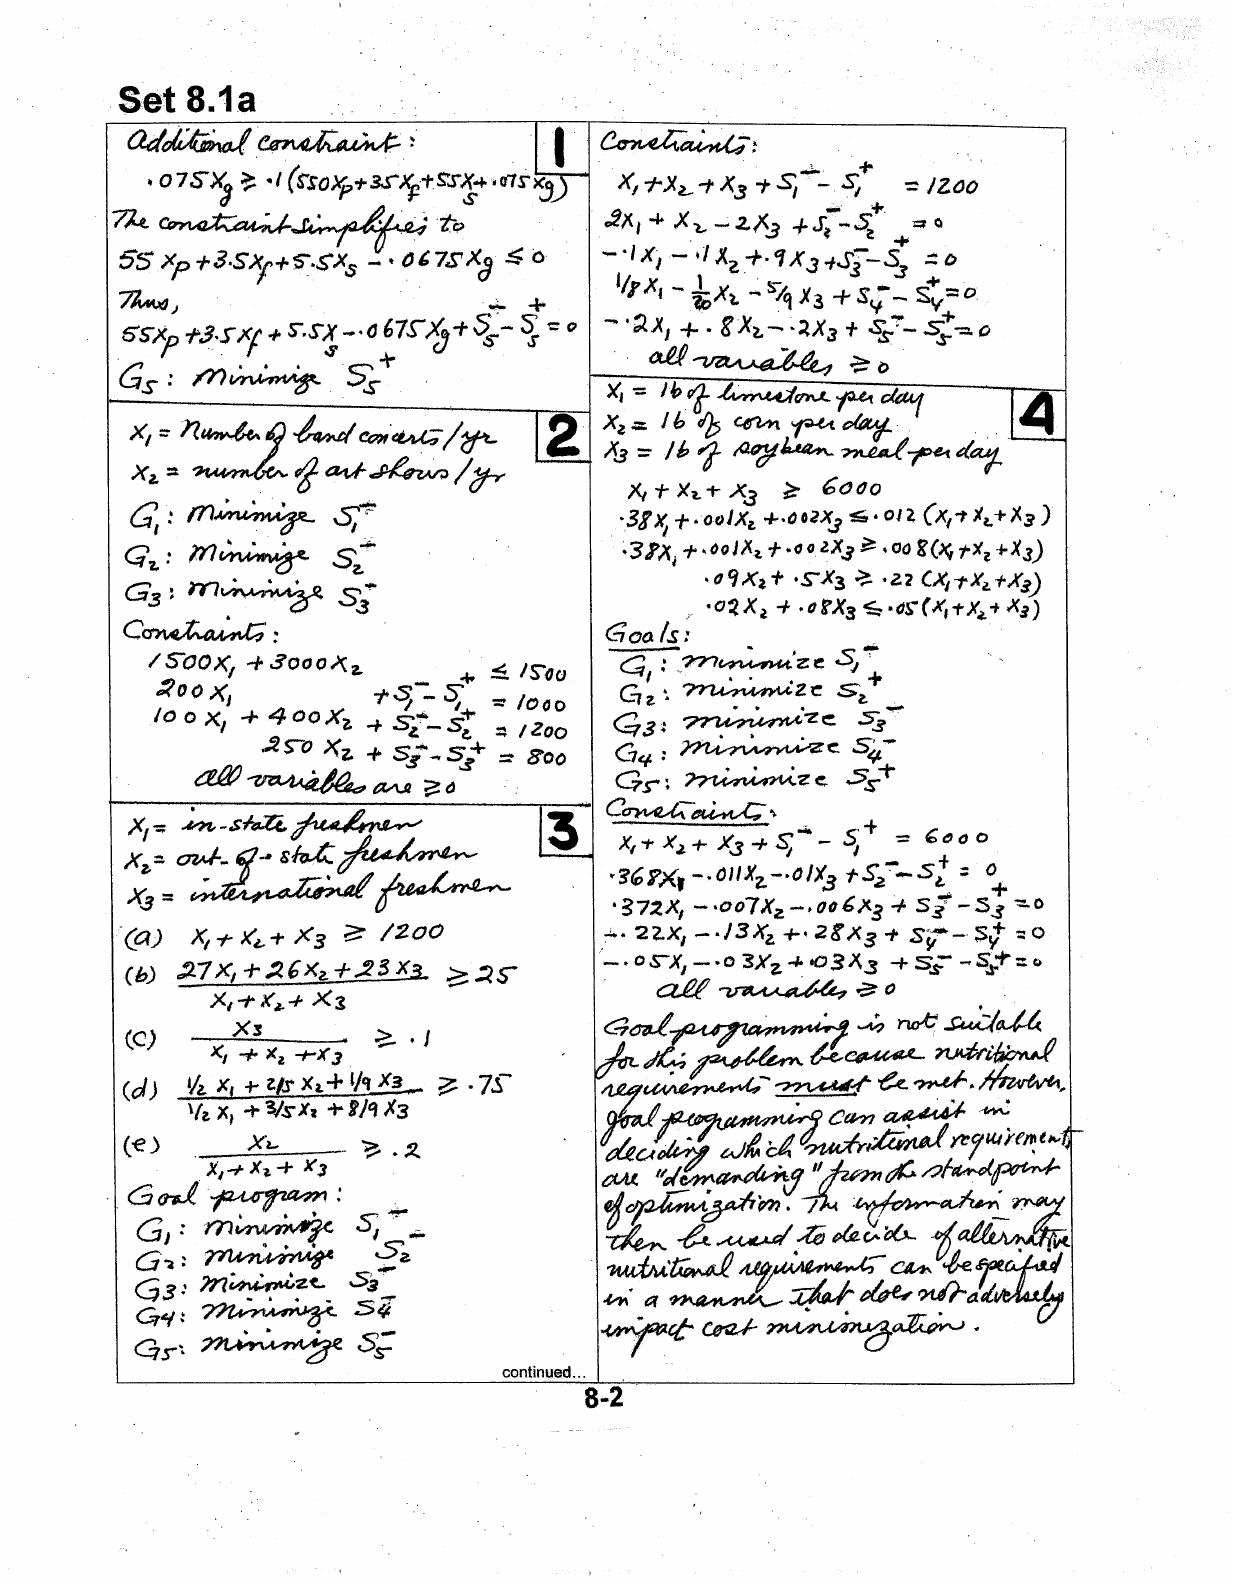 Set 8.1a
1
Additional constraint:
.075Xg ≥ .1(550Xp+35Xf+55Xs+.075Xg)
The constraint simplifies to
55Xp+3.5Xf+5.5Xs-.0675Xg ≤ 0
Thus,
55Xp+3.5Xf+5.5Xs-.0675Xg+S5⁻-S5⁺=0
G5: Minimize S5⁺
2
X1 = Number of band concerts/yr
X2 = number of art shows/yr
G1: Minimize S1⁻
G2: Minimize S2⁻
G3: Minimize S3⁻
Constraints:
1500X1 + 3000X2 ≤ 1500
200X1 + S1⁻ - S1⁺ = 1000
100X1 + 400X2 + S2⁻ - S2⁺ = 1200
250X2 + S3⁻ - S3⁺ = 800
all variables are ≥ 0
3
X1 = in-state freshmen
X2 = out-of-state freshmen
X3 = international freshmen
(a) X1 + X2 + X3 ≥ 1200
(b) 27X1 + 26X2 + 23X3 ≥ 25
X1 + X2 + X3
(c) X3 ≥ .1
X1 + X2 + X3
(d) 1/2 X1 + 2/5 X2 + 1/9 X3 ≥ .75
1/2 X1 + 3/5 X2 + 8/9 X3
(e) X2 ≥ .2
X1 + X2 + X3
Goal program:
G1: Minimize S1⁻
G2: Minimize S2⁻
G3: Minimize S3⁻
G4: Minimize S4⁻
G5: Minimize S5⁻
continued...
Constraints:
X1 + X2 + X3 + S1⁻ - S1⁺ = 1200
2X1 + X2 - 2X3 + S2⁻ - S2⁺ = 0
-.1X1 - .1X2 + .9X3 + S3⁻ - S3⁺ = 0
1/8X1 - 1/20X2 - 5/9X3 + S4⁻ - S4⁺ = 0
-.2X1 + .8X2 - .2X3 + S5⁻ - S5⁺ = 0
all variables ≥ 0
4
X1 = lb of limestone per day
X2 = lb of corn per day
X3 = lb of soybean meal per day
X1 + X2 + X3 ≥ 6000
.38X1 + .001X2 + .002X3 ≤ .012(X1+X2+X3)
.38X1 + .001X2 + .002X3 ≥ .008(X1+X2+X3)
.09X2 + .5X3 ≥ .22(X1+X2+X3)
.02X2 + .08X3 ≤ .05(X1+X2+X3)
Goals:
G1: minimize S1⁻
G2: minimize S2⁺
G3: minimize S3⁻
G4: minimize S4⁻
G5: minimize S5⁺
Constraints:
X1 + X2 + X3 + S1⁻ - S1⁺ = 6000
.368X1 - .011X2 - .01X3 + S2⁻ - S2⁺ = 0
.372X1 - .007X2 - .006X3 + S3⁻ - S3⁺ = 0
-.22X1 - .13X2 + .28X3 + S4⁻ - S4⁺ = 0
-.05X1 - .03X2 + .03X3 + S5⁻ - S5⁺ = 0
all variables ≥ 0
Goal programming is not suitable
for this problem because nutritional
requirements must be met. However,
goal programming can assist in
deciding which nutritional requirements
are "demanding" from the standpoint
of optimization. The information may
then be used to decide if alternative
nutritional requirements can be specified
in a manner that does not adversely
impact cost minimization.
8-2